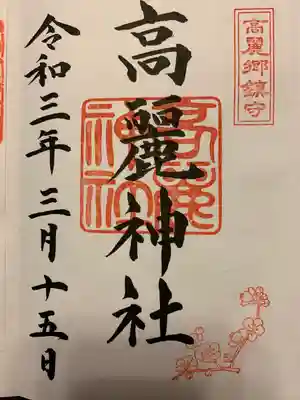 高麗郷鎮守
高麗神社
令和三年三月十五日